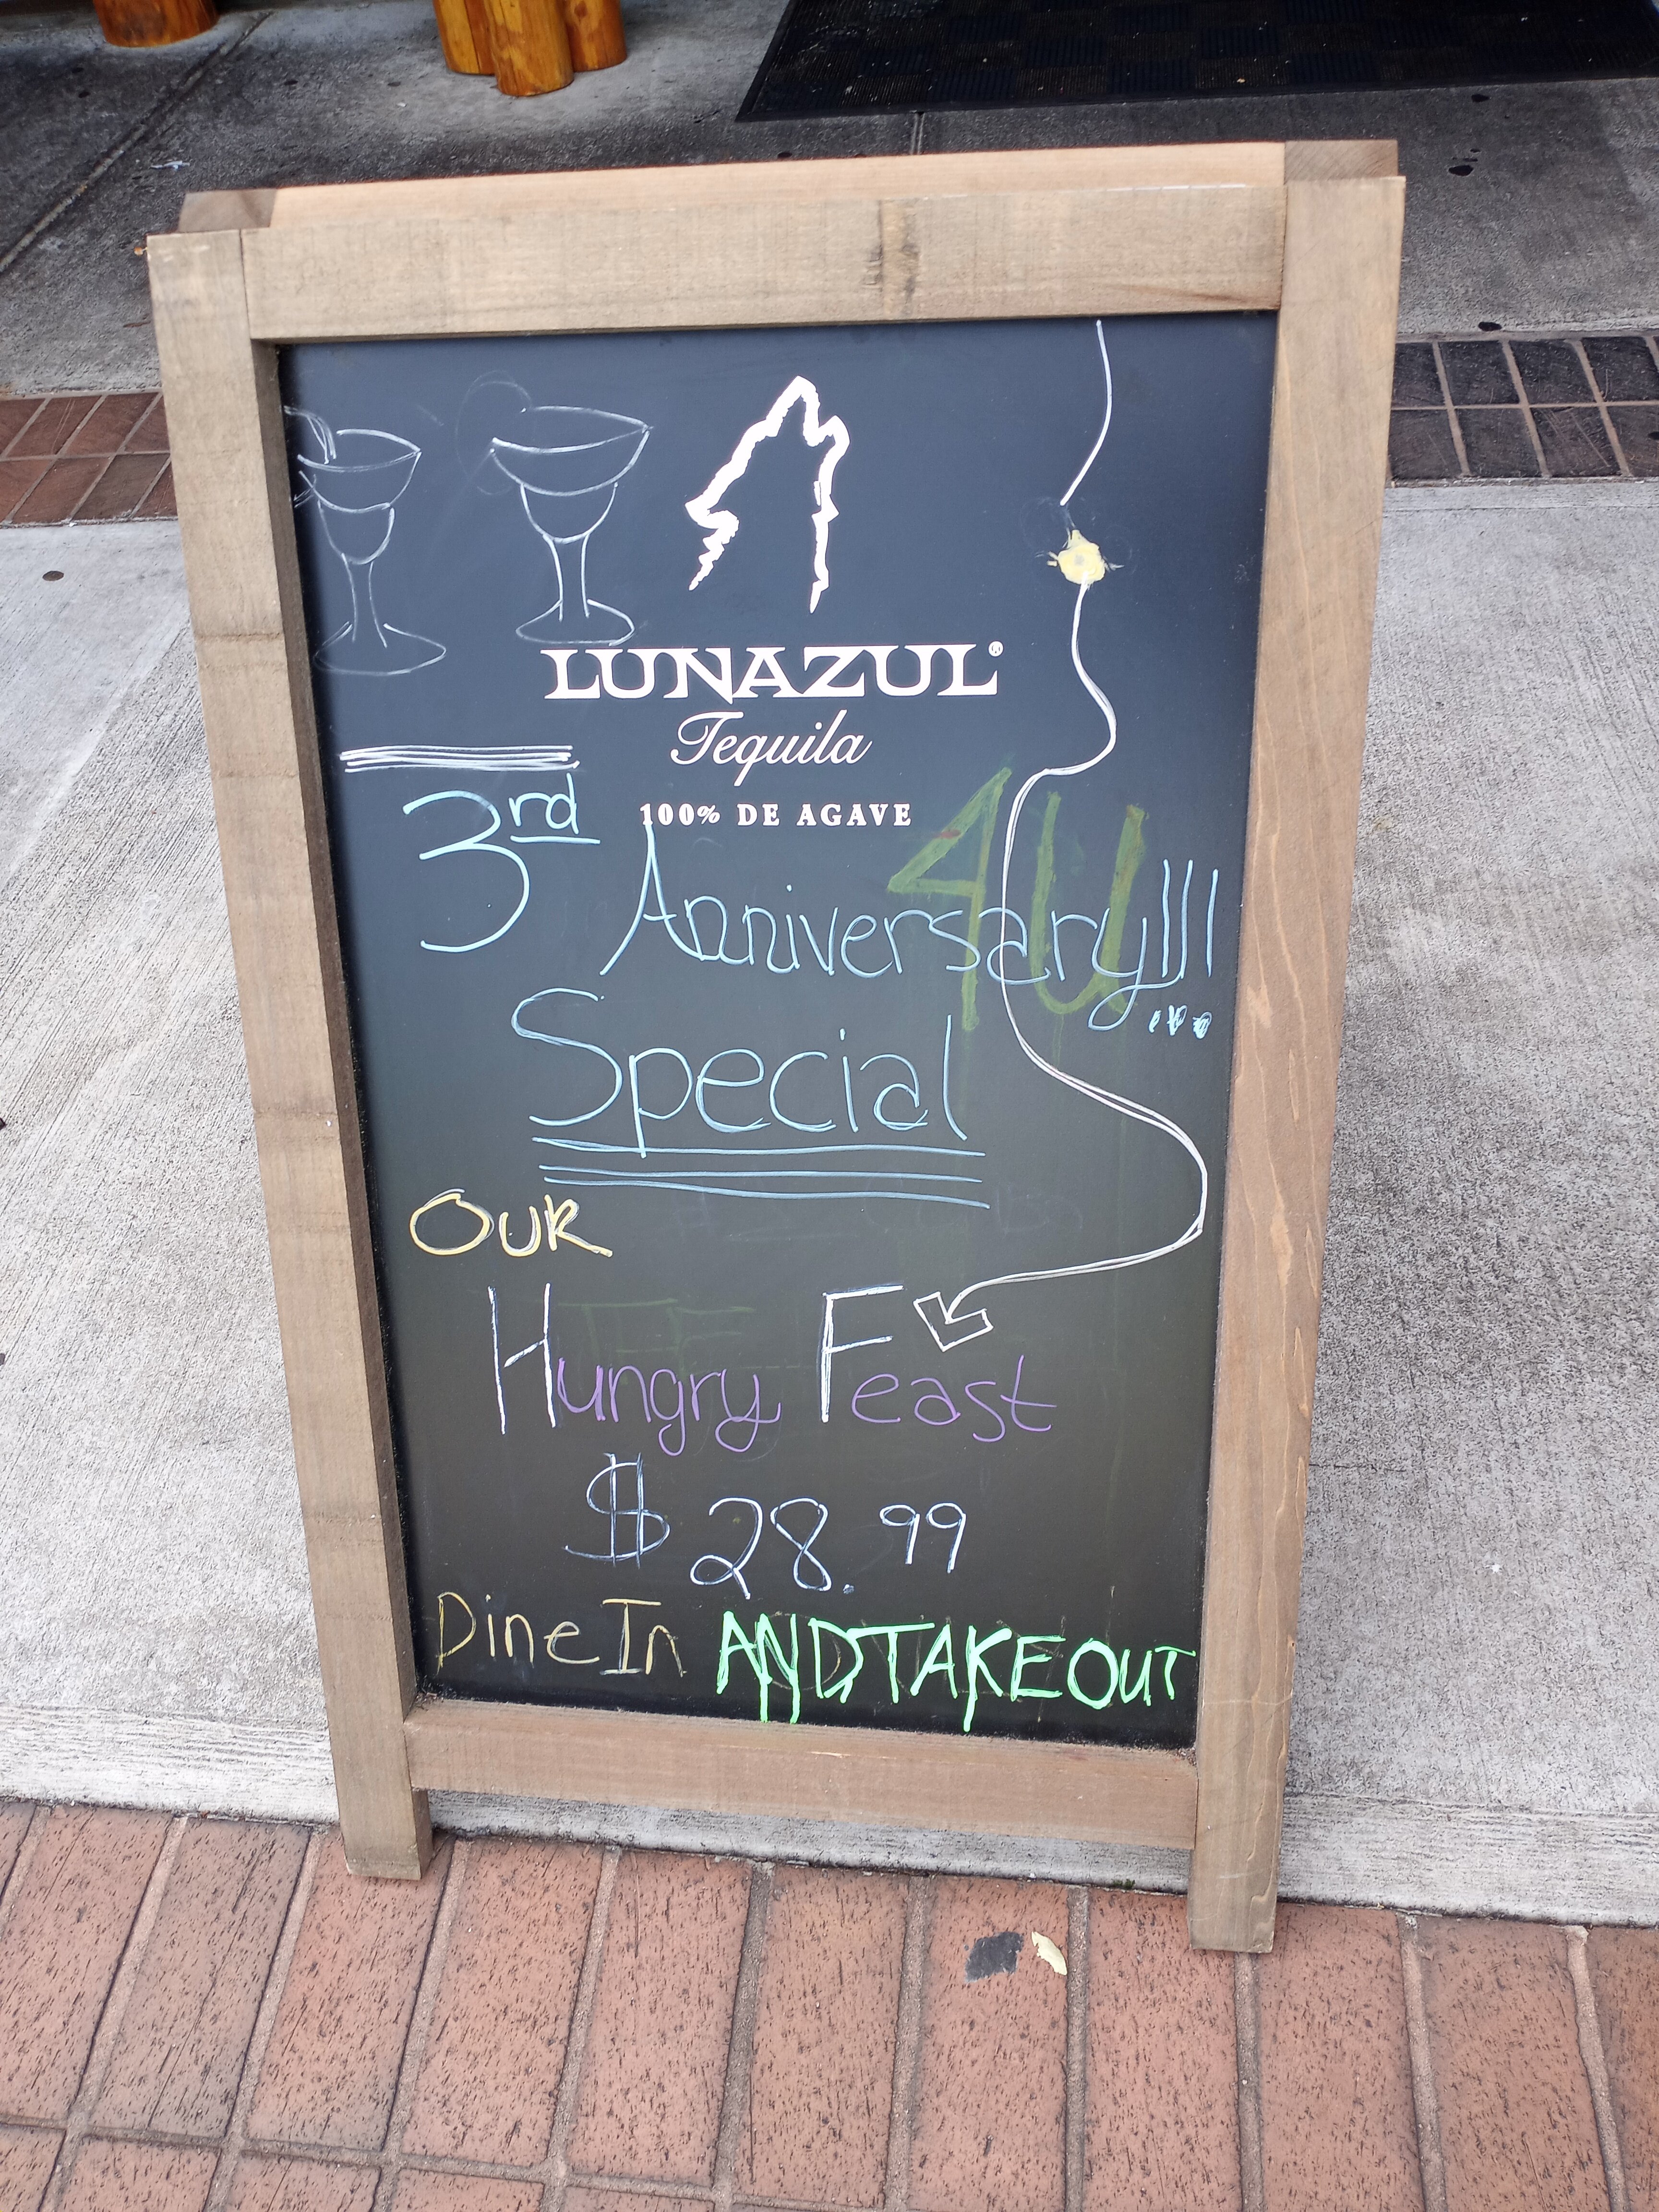 LUNAZUL®
Tequila
100% DE AGAVE
3rd
4U
Anniversary!!!
Special
OUR
Hungry Feast
$28.99
Dine In AND TAKEOUT